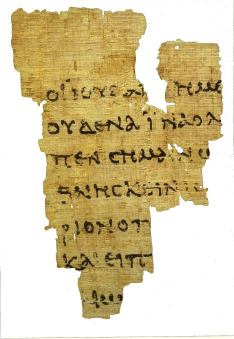 ΟΙΪΟΥΔΑΙ ΗΜΕ
ΟΥΔΕΝΑΪΝΑΟΛΟ
ΠΕΝCΗΜΑΙΝΩ
ΘΝΗCΚΕΙΝΙC
ΡΙΟΝΟΠ
ΚΑΙΕΙΠ